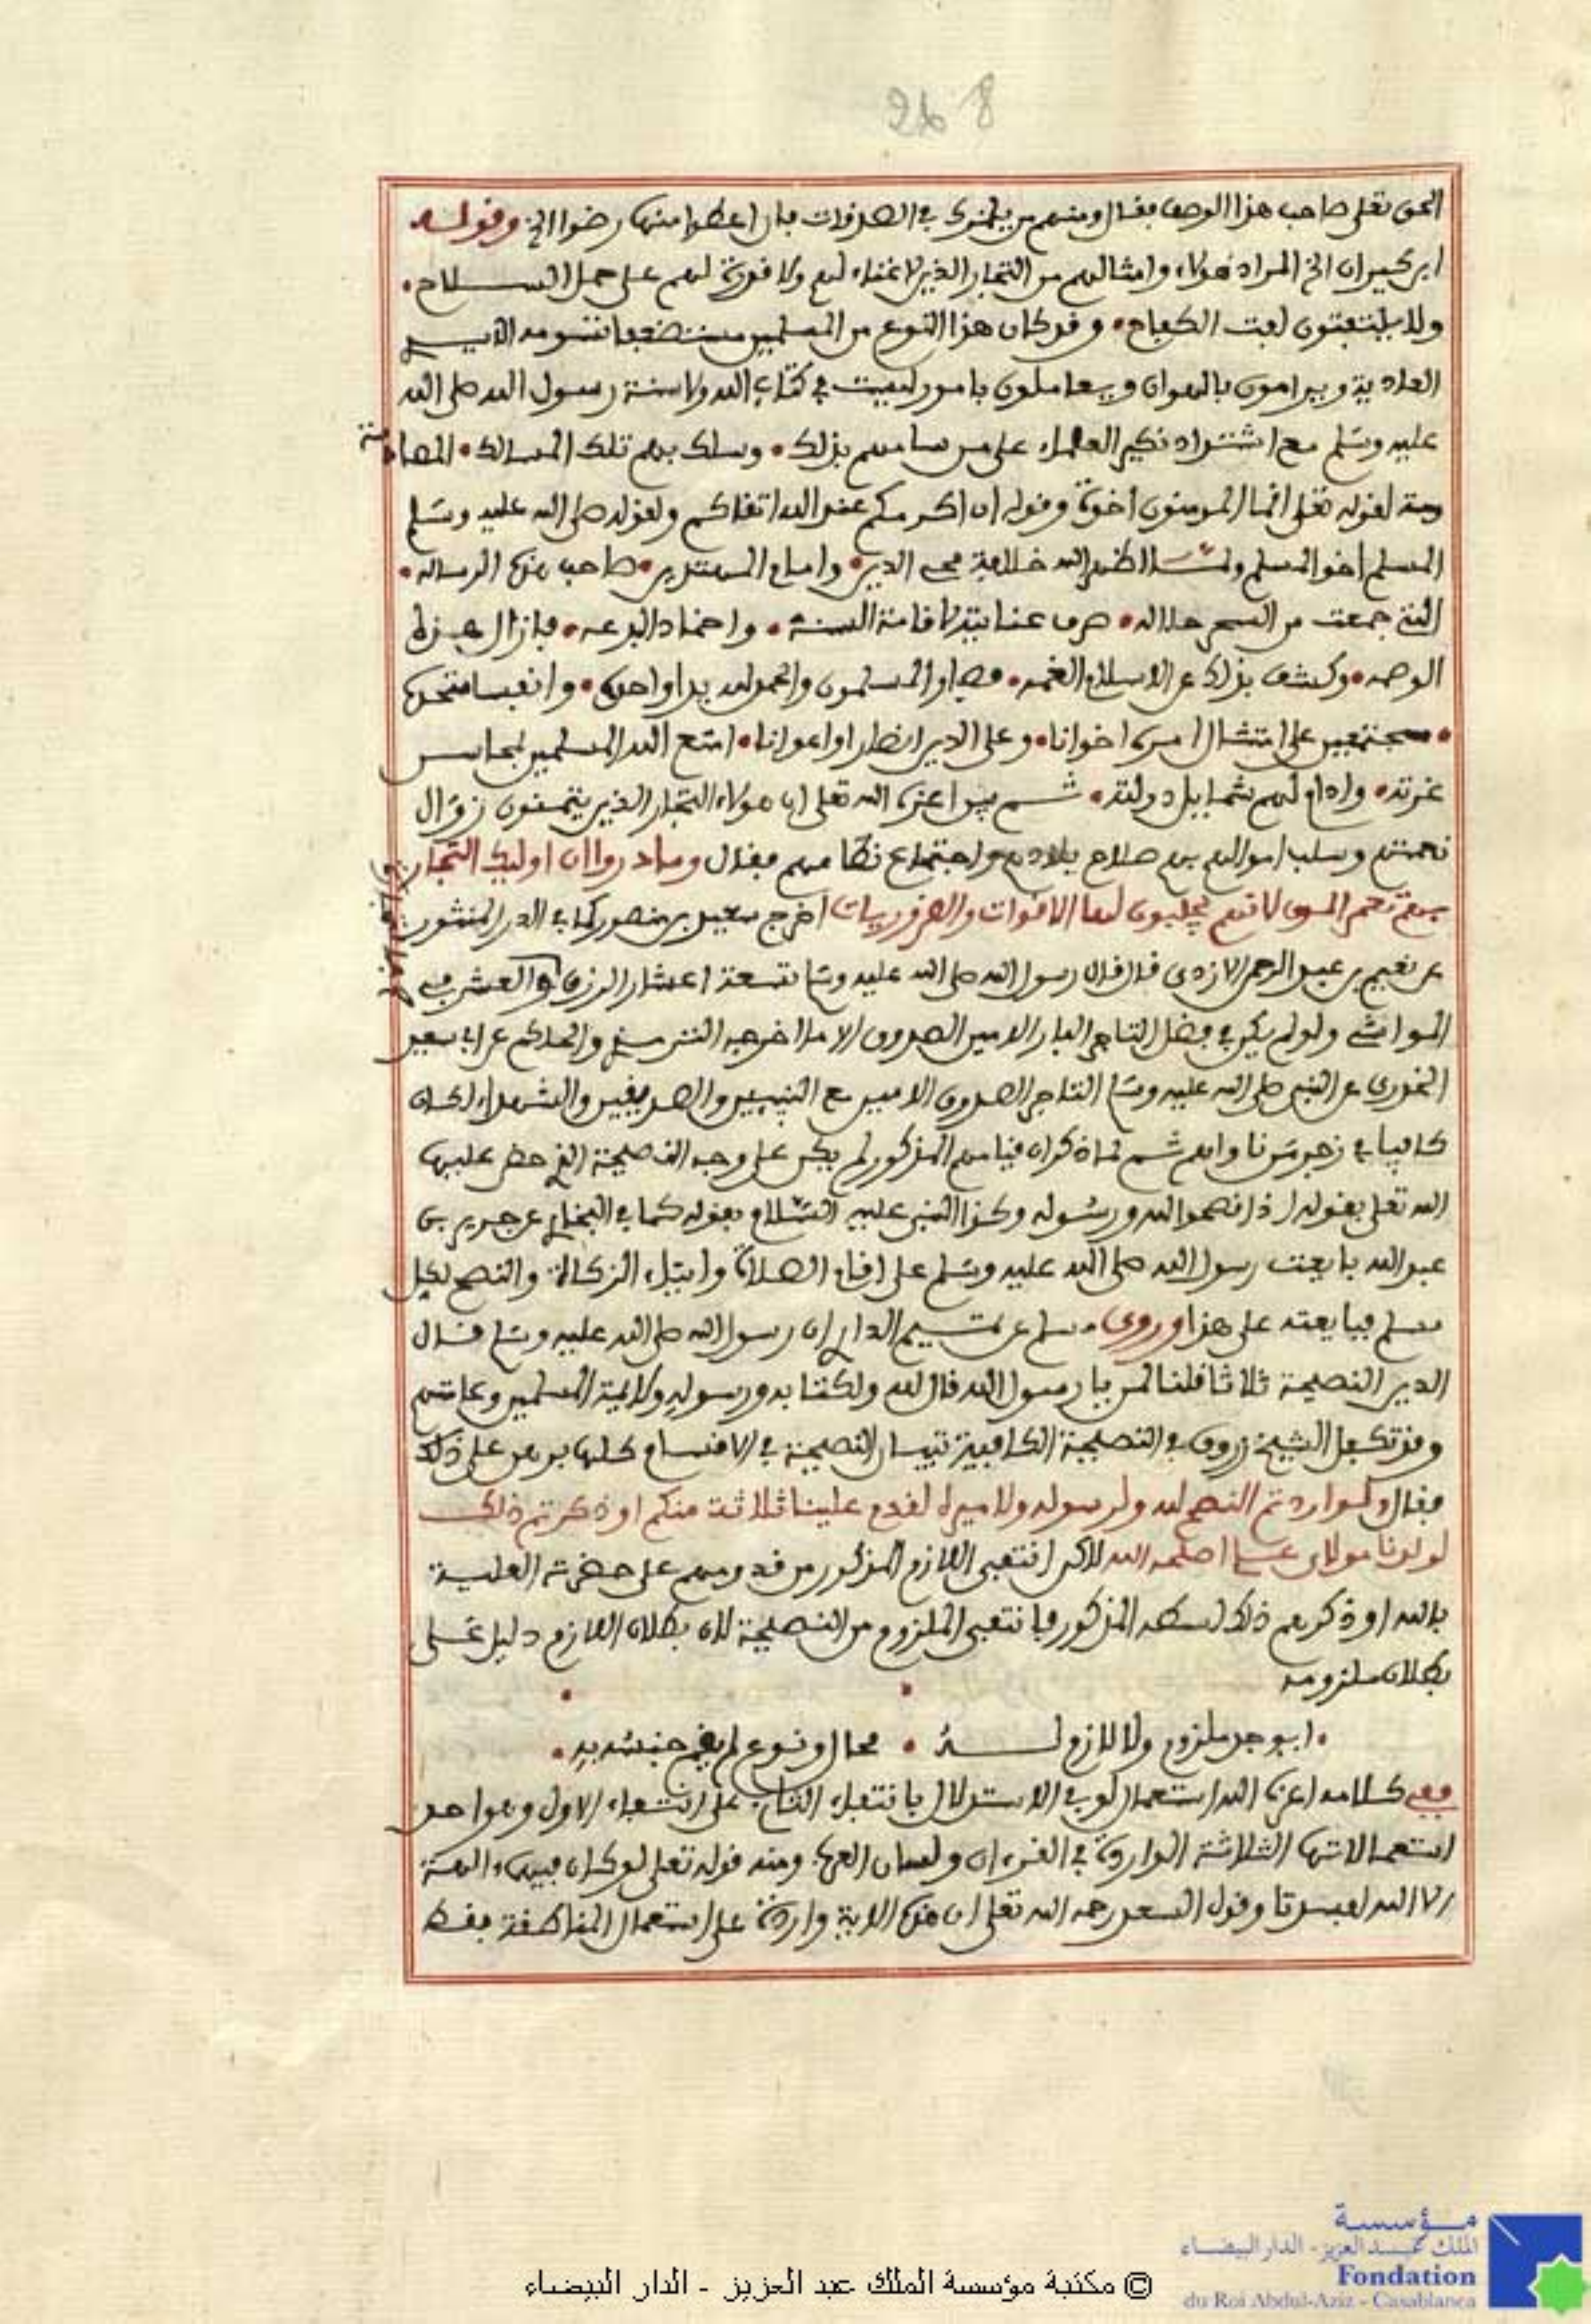 268
الحق تعلى صاحب هذا الوصف فقال ومنهم من يلمزك في الصدقات فإن اعطوا منها رضوا الخ وقوله
ابن كيران الخ المراد هولاء وامثالهم من التجار الذين لا غناء لهم ولا قوة لهم على حمل الســلاح •
ولا يلتفتون لفت الكفاح • وقد كان هذا النوع من المسلمين مستضعفا تسومه الايدي
العادية ويرامون بالهوان ويعاملون بامور ليست في كتاب الله ولا سنة رسول الله صلى الله
عليه وسلم مع اشتداد نكير العلماء على من سامهم بذلك • وسلك بهم تلك المسالك • المصا
دمة لقوله تعلى انما المومنون اخوة وقوله ان اكرمكم عند الله اتقاكم ولقوله صلى الله عليه وسلم
المسلم اخو المسلم ولمــا اظهر الله خلافة محي الدين • وامام المهتدين • صاحب هذه الرساله •
التي جمعت من السحر حلاله • صرف عنايته لاقامة السنة • واخماد البدعه • فازال هذه
الوصمه • وكشف بذلك عن الاسلام الغمه • فصار المسلمون والحمد لله يدا واحدة • وانفسا متحدة
• مجتمعين على امتثال امره اخوانا • وعلى الدين انصارا واعوانا • امتع الله المسلمين بمحاسن
غرته • وادام لهم شمايل دولته • ثــم بين اعزه الله تعلى ان هولاء التجار الذين يتمنون زوال
نعمتهم وسلب اموالهم بهم صلاح بلادهم واجتماع نظامهم فقال وما دروا ان اوليك التجار
بهم تعمر المدن لانهم يجلبون لها الاقوات والضروريات اخرج سعيد بن منصور كما في الدر المنثور
عن نعيم بن عبد الرحمن الازدي قال قال رسول الله صلى الله عليه وسلم تسعة اعشار الرزق والعشر في
المواشي ولو لم يكن في فضل التاجر البار الامين الصدوق الا ما اخرجه الترمذي والحاكم عن ابي سعيد
الخدري عن النبي صلى الله عليه وسلم التاجر الصدوق الامين مع النبيين والصديقين والشهداء لكان
كافيا في زجر من ناواهم ثــم لما ذكر ان قيامهم المذكور لم يكن على وجه النصيحة التي حض عليها
الله تعلى بقوله اذا نصحوا لله ورسوله وكذا النبي عليه السلام بقوله كما في البخاري عن جرير بن
عبد الله بايعت رسول الله صلى الله عليه وسلم على اقام الصلاة وايتاء الزكاة والنصح لكل
مسلم فبايعته على هذا وروى مسلم عن تميم الداري ان رسول الله صلى الله عليه وسلم قال
الدين النصيحة ثلاثا قلنا لمن يا رسول الله قال لله ولكتابه ورسوله ولايمة المسلمين وعامتهم
وقد تكفل الشيخ زروق في النصيحة الكافية بتبيان النصيحة في الاقسام كلها برهن على ذلك
فقال ولو اردتم النصح لله ولرسوله ولاميره لقدم علينا ثلاثة منكم او ذكرتم ذلك
لولدنا مولاي اصلحه الله لاكن انتفى اللازم المذكور من قدومهم على حضرته العلية
بالله او ذكرهم ذلك المذكور فانتفى الملزوم من النصيحة لان بطلان اللازم دليل على
بطلان ملزومه
• ايوجد ملزوم ولا لازم لــه • محال وقوع لم يفه جنسه به •
ففي كلامه اعزه الله استعمال لو في الاستدلال بانتفاء الثاني على انتفاء الاول وهو احد
استعمالاتها الثلاثة الواردة في القرءان ولسان العرب ومنه قوله تعلى لو كان فيهما ءالهة
الا الله لفسدتا وقول السعد رحمه الله تعلى ان هذه الاية واردة على استعمال المناطقة فقط
مؤسسة
الملك عبد العزيز - الدار البيضاء
Fondation
du Roi Abdul-Aziz - Casablanca
© مكتبة مؤسسة الملك عبد العزيز - الدار البيضاء